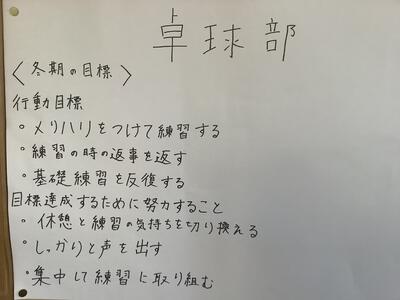 卓球部
〈冬期の目標〉
行動目標
・メリハリをつけて練習する
・練習の時の返事を返す
・基礎練習を反復する
目標達成するために努力すること
・休憩と練習の気持ちを切り換える
・しっかりと声を出す
・集中して練習に取り組む